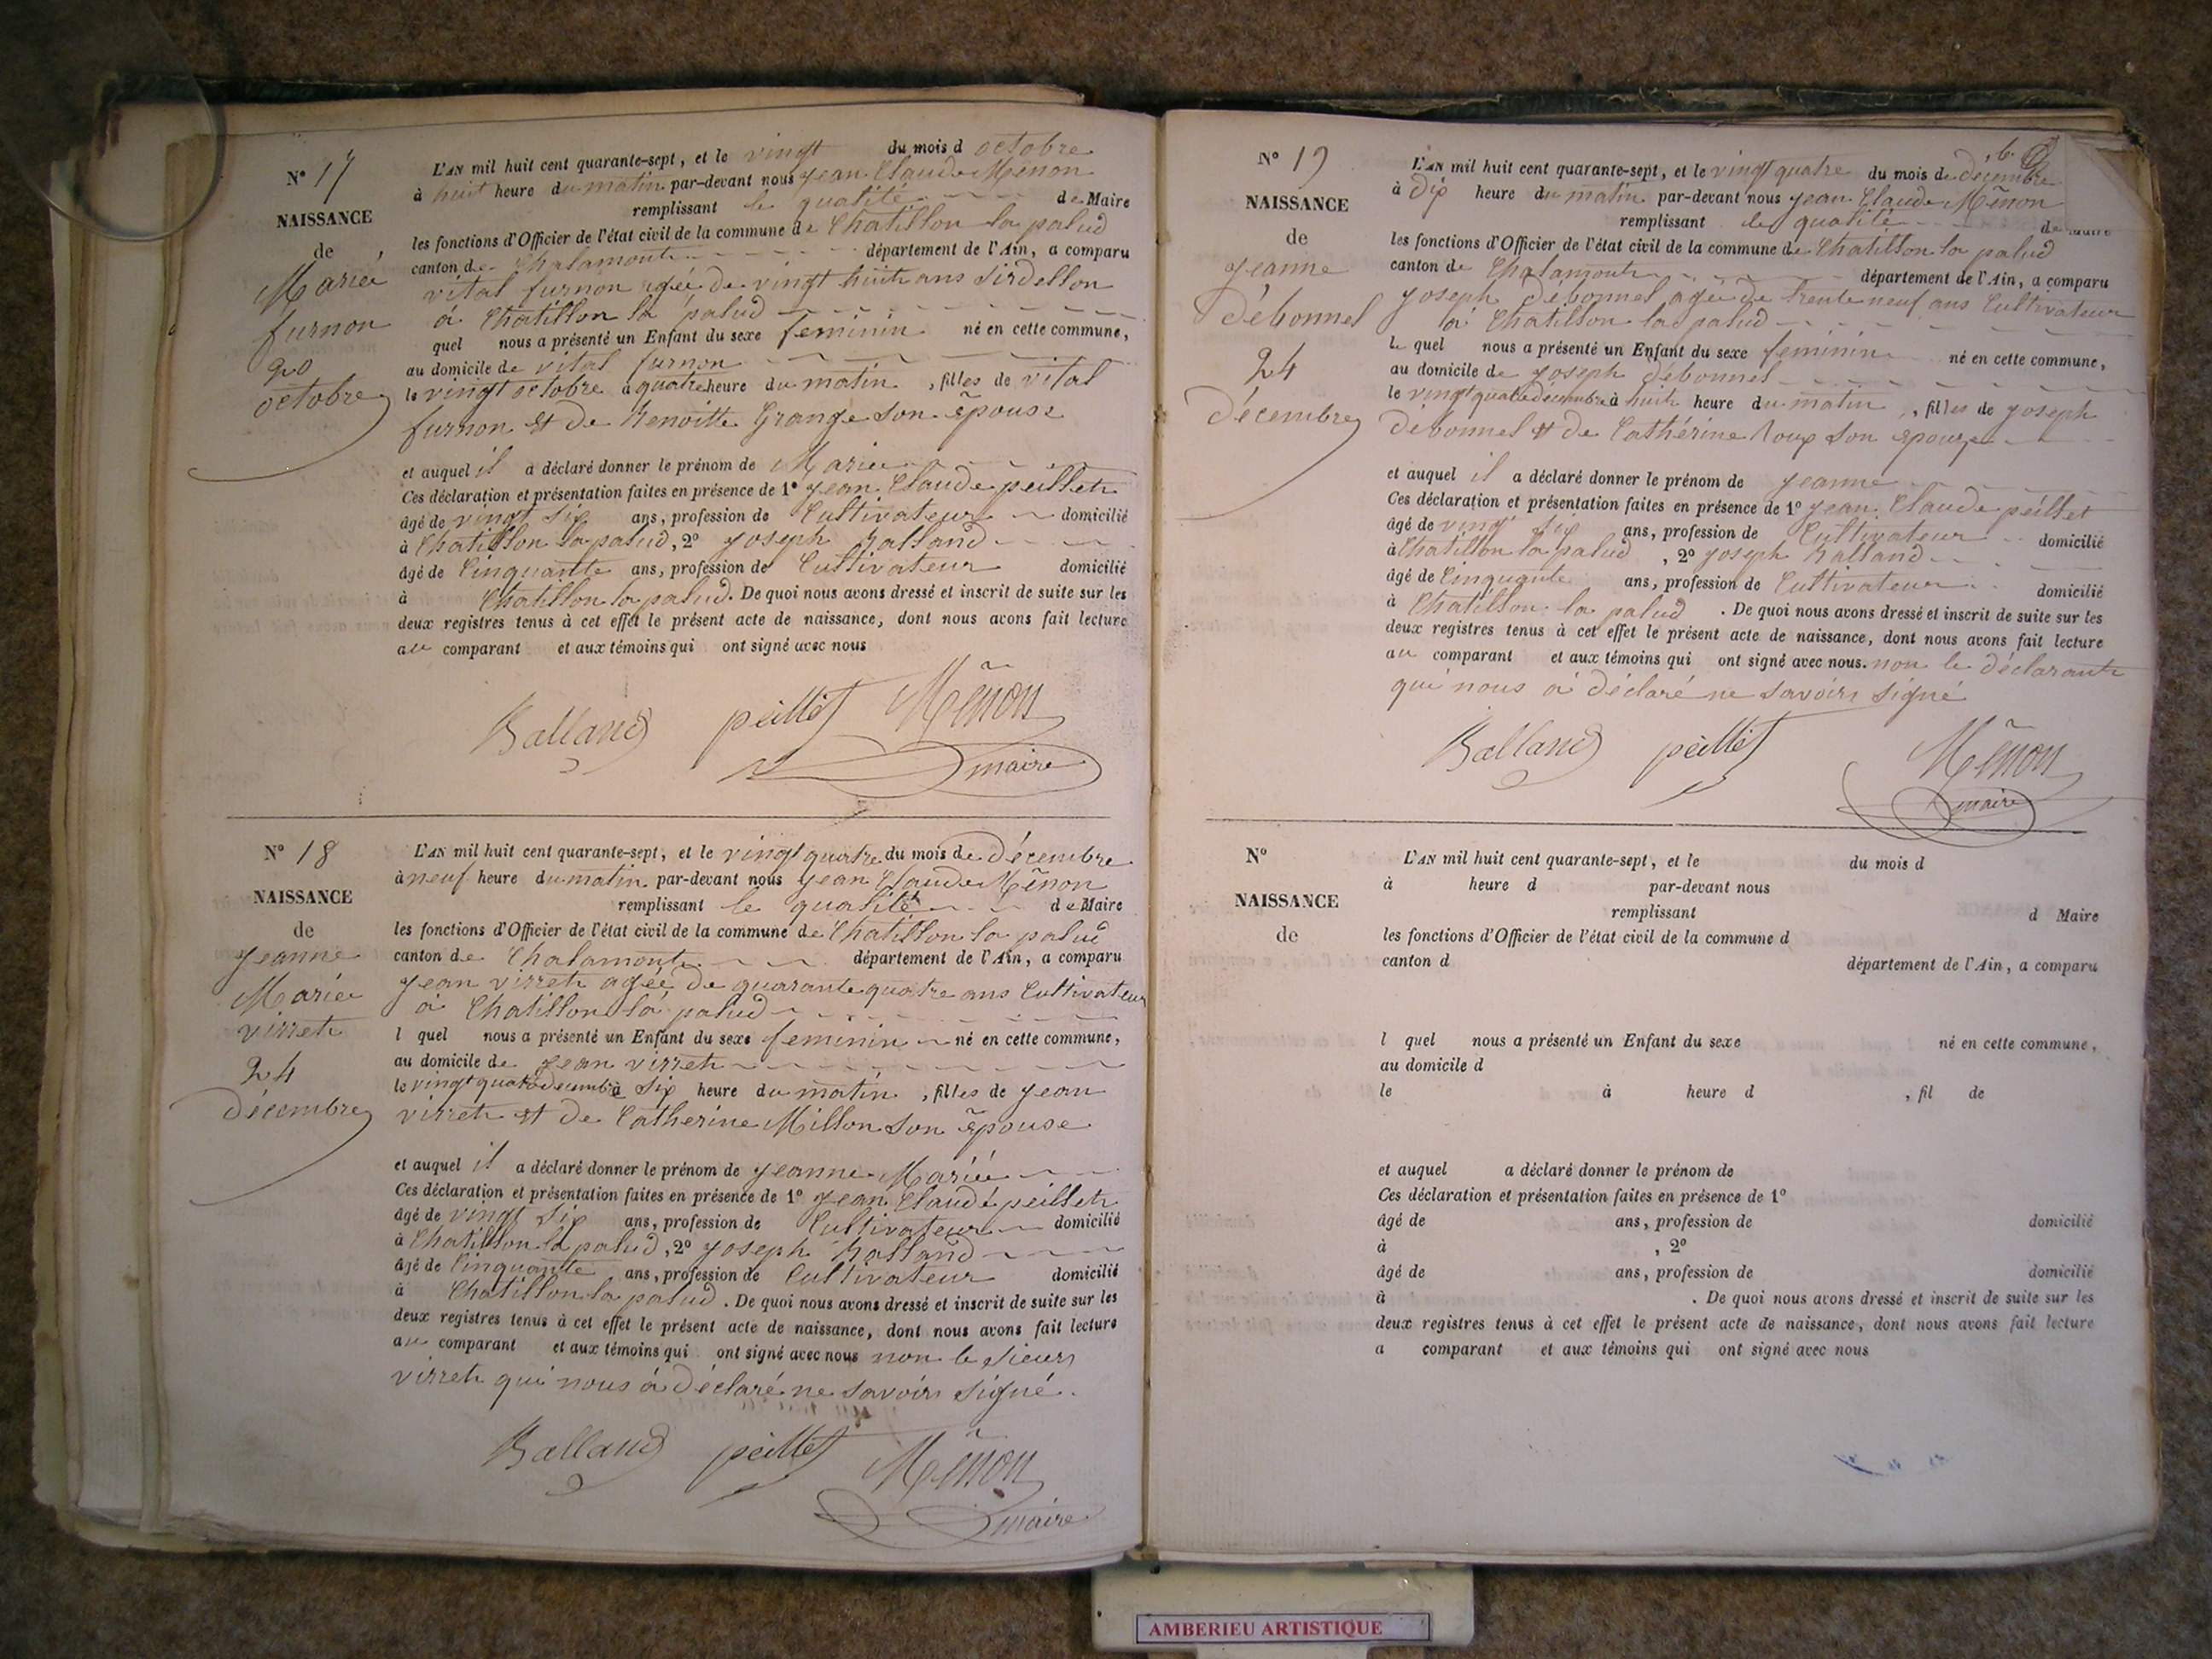 N° 17
NAISSANCE
de
Mariée
furnon
20
octobre
L'AN mil huit cent quarante-sept, et le vingt du mois d octobre
à huit heure du matin par-devant nous Jean Claude Menon
remplissant le qualité de Maire
les fonctions d'Officier de l'état civil de la commune de Chatillon la palud
canton de Chalamont département de l'Ain, a comparu
vital furnon agée de vingt huit ans
à Chatillon la palud
quel nous a présenté un Enfant du sexe feminin né en cette commune,
au domicile de vital furnon
le vingt octobre à quatre heure du matin, filles de vital
furnon et de Benoitte Grange son épouse
et auquel il a déclaré donner le prénom de Mariee
Ces déclaration et présentation faites en présence de 1° Jean Claude peillet
âgé de vingt six ans, profession de Cultivateur domicilié
à Chatillon la palud, 2° Joseph Balland
âgé de Cinquante ans, profession de Cultivateur domicilié
à Chatillon la palud. De quoi nous avons dressé et inscrit de suite sur les
deux registres tenus à cet effet le présent acte de naissance, dont nous avons fait lecture
au comparant et aux témoins qui ont signé avec nous
Balland peillet Menon
maire
N° 18
NAISSANCE
de
Jeanne
Mariée
virret
24
Décembre
L'AN mil huit cent quarante-sept, et le vingt quatre du mois de Décembre
à neuf heure du matin par-devant nous Jean Claude Menon
remplissant le qualité de Maire
les fonctions d'Officier de l'état civil de la commune de Chatillon la palud
canton de Chalamont département de l'Ain, a comparu
Jean virret agée de quarante quatre ans Cultivateur
à Chatillon la palud
l quel nous a présenté un Enfant du sexe feminin né en cette commune,
au domicile de Jean virret
le vingt quatre décembre à six heure du matin, filles de Jean
virret et de Catherine Millon son épouse
et auquel il a déclaré donner le prénom de Jeanne Mariée
Ces déclaration et présentation faites en présence de 1° Jean Claude peillet
âgé de vingt six ans, profession de Cultivateur domicilié
à Chatillon la palud, 2° Joseph Balland
âgé de Cinquante ans, profession de Cultivateur domicilié
à Chatillon la palud. De quoi nous avons dressé et inscrit de suite sur les
deux registres tenus à cet effet le présent acte de naissance, dont nous avons fait lecture
au comparant et aux témoins qui ont signé avec nous non le sieur
virret qui nous à déclaré ne savoir signé.
Balland peillet Menon
maire
N° 19
NAISSANCE
de
Jeanne
Débonnel
24
Décembre
L'AN mil huit cent quarante-sept, et le vingt quatre du mois de décembre
à Dix heure du matin par-devant nous Jean Claude Menon
remplissant le qualité de Maire
les fonctions d'Officier de l'état civil de la commune de Chatillon la palud
canton de Chalamont département de l'Ain, a comparu
Joseph Débonnel agée de trente neuf ans Cultivateur
à Chatillon la palud
le quel nous a présenté un Enfant du sexe feminin né en cette commune,
au domicile de Joseph Débonnel
le vingt quatre decembre à huit heure du matin, filles de Joseph
Débonnel et de Cathérine Roux son épouze
et auquel il a déclaré donner le prénom de Jeanne
Ces déclaration et présentation faites en présence de 1° Jean Claude peillet
âgé de vingt six ans, profession de Cultivateur domicilié
à Chatillon la palud, 2° Joseph Balland
âgé de Cinquante ans, profession de Cultivateur domicilié
à Chatillon la palud. De quoi nous avons dressé et inscrit de suite sur les
deux registres tenus à cet effet le présent acte de naissance, dont nous avons fait lecture
au comparant et aux témoins qui ont signé avec nous. non le déclarant
qui nous à déclaré ne savoir signé
Balland peillet Menon
maire
N°
NAISSANCE
de
L'AN mil huit cent quarante-sept, et le du mois d
à heure d par-devant nous
remplissant d Maire
les fonctions d'Officier de l'état civil de la commune d
canton d département de l'Ain, a comparu
l quel nous a présenté un Enfant du sexe né en cette commune,
au domicile d
le à heure d, fil de
et auquel a déclaré donner le prénom de
Ces déclaration et présentation faites en présence de 1°
âgé de ans, profession de domicilié
à, 2°
âgé de ans, profession de domicilié
à. De quoi nous avons dressé et inscrit de suite sur les
deux registres tenus à cet effet le présent acte de naissance, dont nous avons fait lecture
a comparant et aux témoins qui ont signé avec nous
AMBERIEU ARTISTIQUE